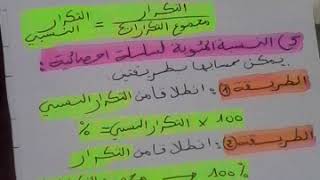 التكرار النسبي = التكرار / مجموع التكرارات
كن النسبة المئوية لسلسلة احصائية:
يمكن حسابها بطريقتين
الطريقة ①: انطلاقا من التكرار النسبي
% = التكرار النسبي × 100
الطريقة ②: انطلاقا من التكرار
100% →